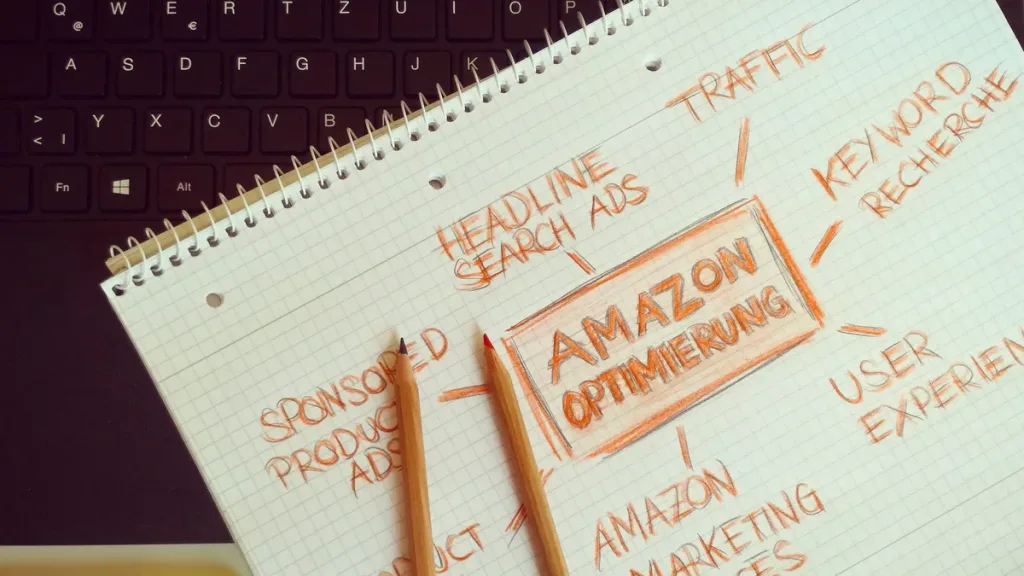 Q W E R T Z U I O P
@ €
A S D F G H J K
>
< | Y X C V B
Fn Alt
TRAFFIC
KEYWORD
RECHERCHE
HEADLINE
SEARCH ADS
AMAZON
OPTIMIERUNG
SPONSORED
PRODUCT
ADS
USER
EXPERIEN
AMAZON
MARKETING